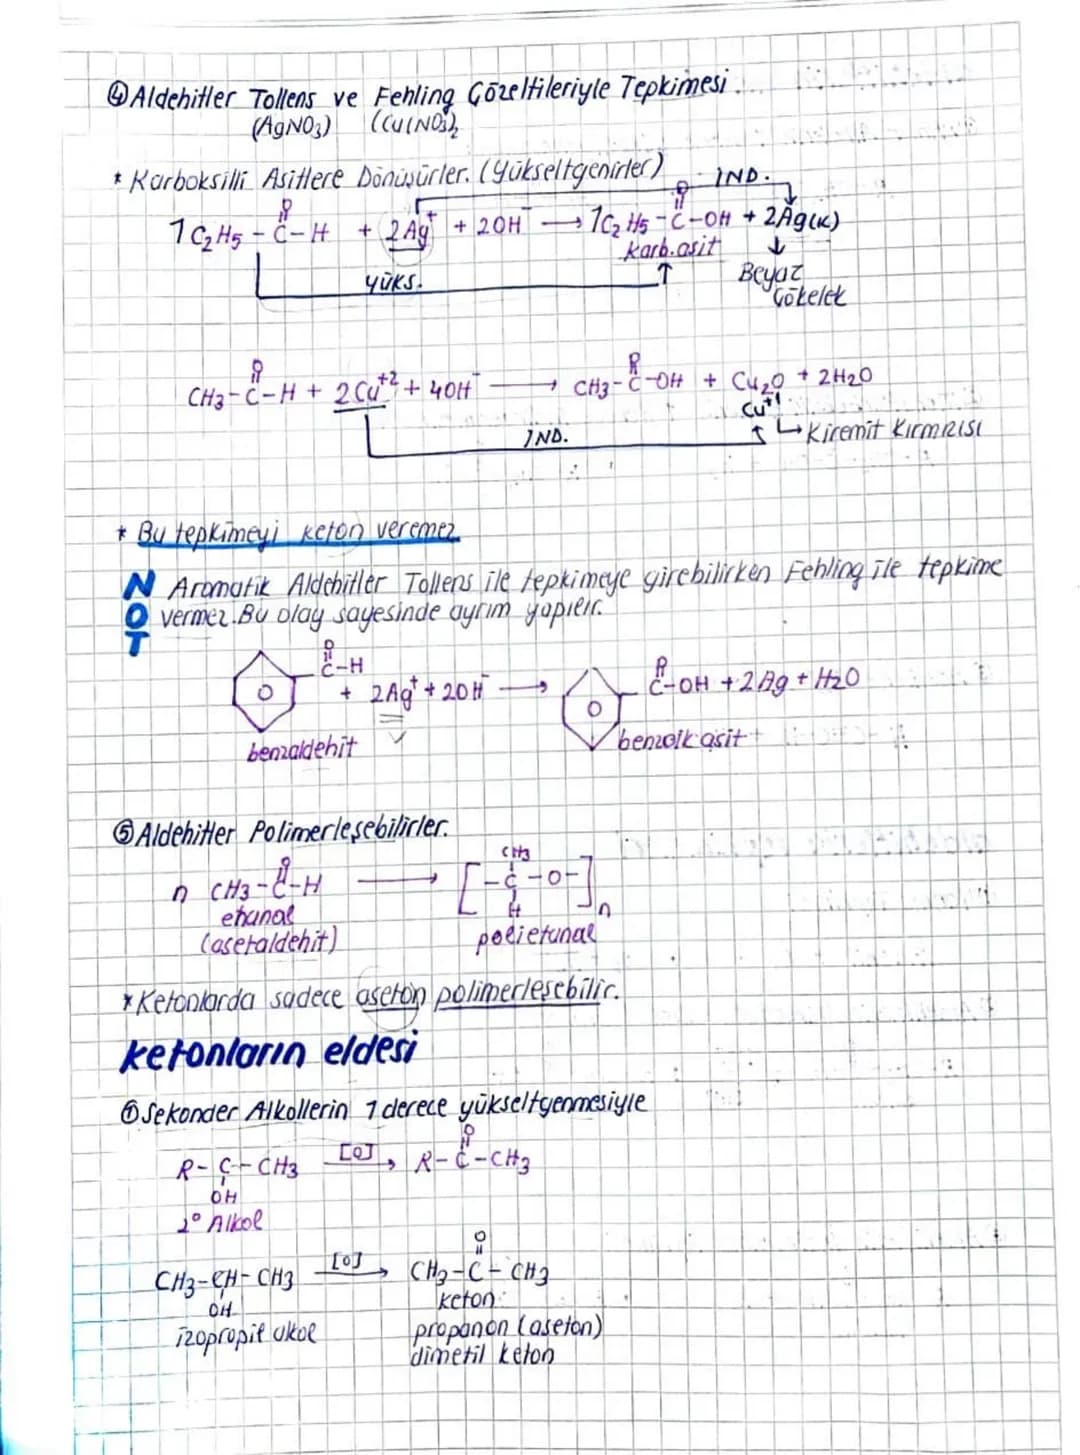 ④ Aldehitler Tollens ve Fehling Çözeltileriyle Tepkimesi.
(AgNO3) (Cu(NO3)2
* Karboksilli Asitlere Dönüşürler. (Yükseltgenirler) İND.
O O
1C2H5-C-H + 2Ag+ + 2OH- → 1C2H5-C-OH + 2Ag(k)
karb.asit ↓
yüks. ↑ Beyaz
Çökelek
O O
CH3-C-H + 2Cu+2 + 4OH- → CH3-C-OH + Cu2O + 2H2O
Cu+1
İND. ↑ ↳ Kiremit Kırmızısı
* Bu tepkimeyi keton veremez
NOT Aromatik Aldehitler Tollens ile tepkimeye girebilirken Fehling ile tepkime
vermez. Bu olay sayesinde ayrım yapılır.
O O
C-H C-OH + 2Ag + H2O
+ 2Ag+ + 2OH- →
benzaldehit benzoik asit
⑤ Aldehitler Polimerleşebilirler.
O CH3
n CH3-C-H → [-C-O-]n
etanal H
(asetaldehit) polietanal
* Ketonlarda sadece aseton polimerleşebilir.
ketonların eldesi
① Sekonder Alkollerin 1 derece yükseltgenmesiyle
O
R-C-CH3 [O] → R-C-CH3
OH
2° Alkol
O
CH3-CH-CH3 [O] → CH3-C-CH3
OH keton
izopropil alkol propanon (aseton)
dimetil keton